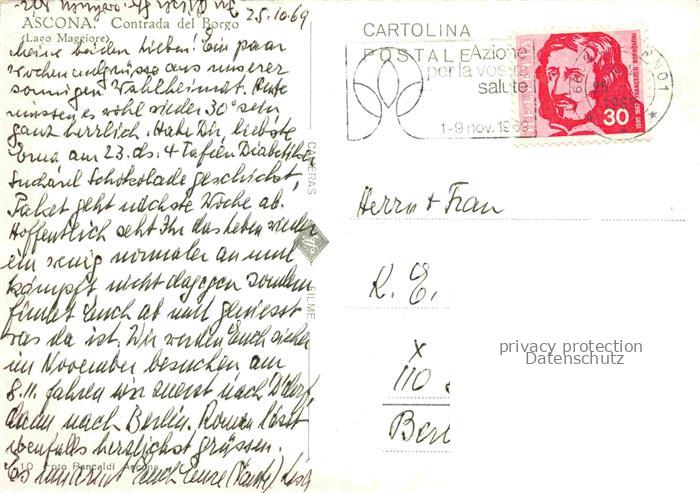 25.10.69
ASCONA. Contrada del Borgo
(Lago Maggiore)
Meine beiden Lieben! Ein paar
Wochenendgrüsse aus unserer
sonnigen Wahlheimat. Heute
müssen es wohl wieder 30° sein
ganz herrlich. Habe Dir liebste
am 23. ds. 4 Tafeln Diabetiker
Schokolade geschickt,
Paket geht nächste Woche ab.
Hoffentlich seht Ihr das Leben wieder
ein wenig normaler an und
kämpft nicht dagegen sondern
findet Euch ab und geniesst
was da ist. Wir werden Euch sicher
im November besuchen am
8.11. fahren wir zuerst nach D'dorf,
dann nach Berlin. Roman lässt
ebenfalls herzlichst grüssen.
Es umarmt Euch Eure
10 Foto Bancaldi Ascona
CAMERAS
FILME
CARTOLINA
POSTALE
Azione
per la vostra
salute
1-9 nov. 1969
30
Herrn + Frau
K. E.
x
110
Ber
privacy protection
Datenschutz